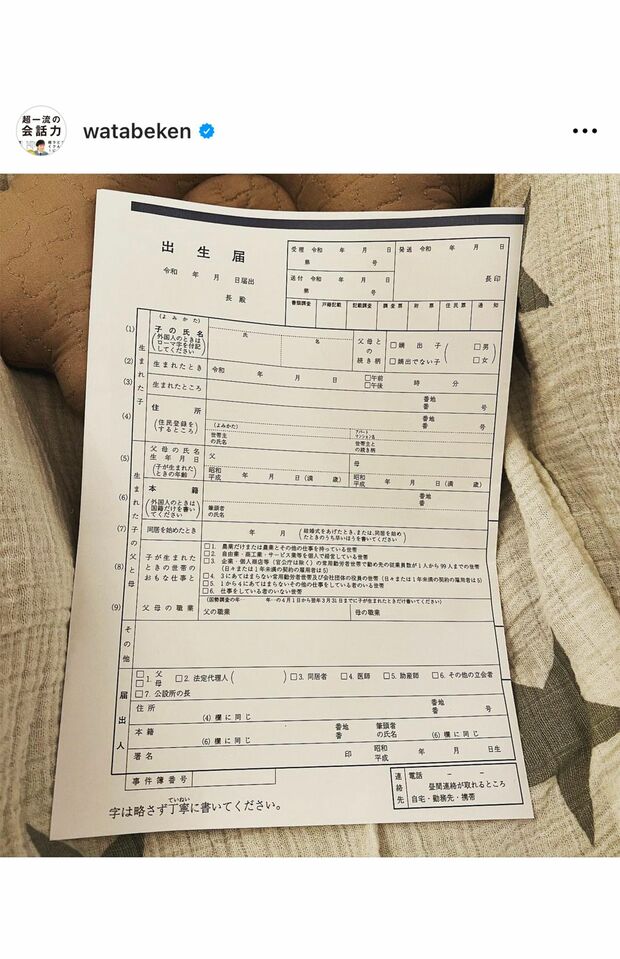 超一流の
会話力
watabeken
出生届
令和　年　月　日届出
長 殿
受理 令和　年　月　日
第　号
送付 令和　年　月　日
第　号
発送 令和　年　月　日
長印
書類調査 戸籍記載 記載調査 調査票 附票 住民票 通知
生まれた子
(1)
(よみかた)
子の氏名
(外国人のときはローマ字を付記してください)
氏 名
父母との続き柄
□嫡出子
□嫡出でない子
(□男 □女)
(2)
生まれたとき
令和　年　月　日
□午前
□午後
時　分
(3)
生まれたところ
番地
番　号
(4)
住所
(住民登録をするところ)
番地
番　号
(よみかた)
世帯主の氏名
世帯主との続き柄
生まれた子の父と母
(5)
父母の氏名
生年月日
(子が生まれたときの年齢)
父
母
昭和
平成　年　月　日(満　歳)
昭和
平成　年　月　日(満　歳)
(6)
本籍
(外国人のときは国籍だけを書いてください)
番地
番
筆頭者の氏名
(7)
同居を始めたとき
年　月
(結婚式をあげたとき、または、同居を始めたときのうち早いほうを書いてください)
(8)
子が生まれたときの世帯のおもな仕事と
□1. 農業だけまたは農業とその他の仕事を持っている世帯
□2. 自由業・商工業・サービス業等を個人で経営している世帯
□3. 企業・個人商店等（官公庁は除く）の常用勤労者世帯で勤め先の従業者数が1人から99人までの世帯
（日々または1年未満の契約の雇用者は5）
□4. 3にあてはまらない常用勤労者世帯及び会社団体の役員の世帯（日々または1年未満の契約の雇用者は5）
□5. 1から4にあてはまらないその他の仕事をしている者のいる世帯
□6. 仕事をしている者のいない世帯
(9)
父母の職業
(国勢調査の年　年…の4月1日から翌年3月31日までに子が生まれたときだけ書いてください)
父の職業
母の職業
その他
届出人
□1. 父
□　母
□2. 法定代理人(　)
□3. 同居者
□4. 医師
□5. 助産師
□6. その他の立会者
□7. 公設所の長
住所
(4) 欄に同じ
番地
番　号
本籍
(6) 欄に同じ
番地
番
筆頭者の氏名
(6) 欄に同じ
署名
印
昭和
平成　年　月　日生
事件簿番号
字は略さず丁寧に書いてください。
ていねい
連絡先
電話　－　－
昼間連絡が取れるところ
自宅・勤務先・携帯